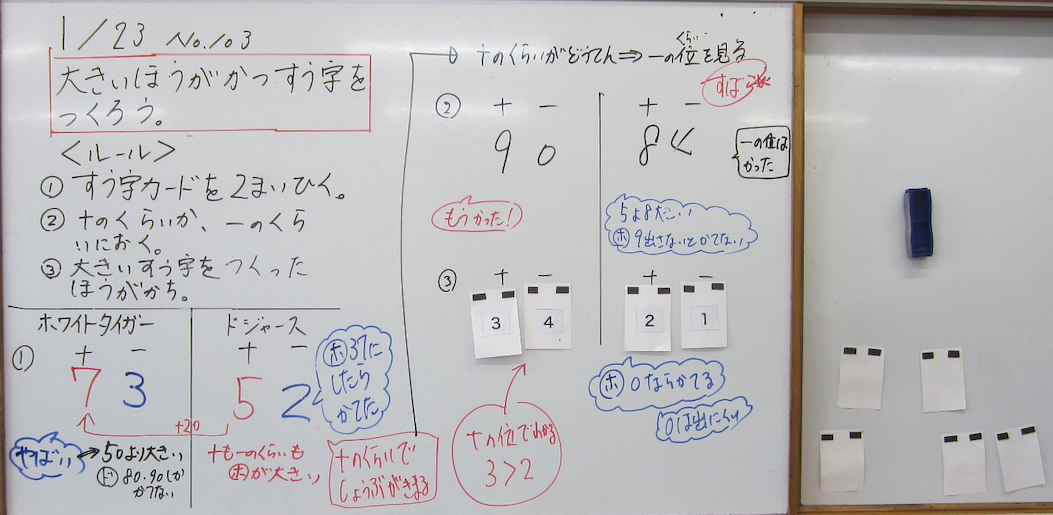 1/23 No.103
大きいほうがかつすう字を
つくろう。
<ルール>
① すう字カードを2まいひく。
② 十のくらいか、一のくら
いにおく。
③ 大きいすう字をつくった
ほうがかち。
ホワイトタイガー
ドジャース
①
十 一
7 3
十 一
5 2
ホ 37に
したら
かてた
+20
やばい
50より大きい
ド 80.90しか
かてない
十も一のくらいも
ホが大きい
十のくらいで
しょうぶがきまる
十のくらいがどうてん⇒一の位を見る
くらい
すばらしい
②
十 一
9 0
十 一
8
一の位は
かった
もうかった!
5より大きい
ホ 9出さないとかてない
③
十 一
3 4
十 一
2 1
十の位でわかる
3>2
ホ 0ならかてる
0は出にくい